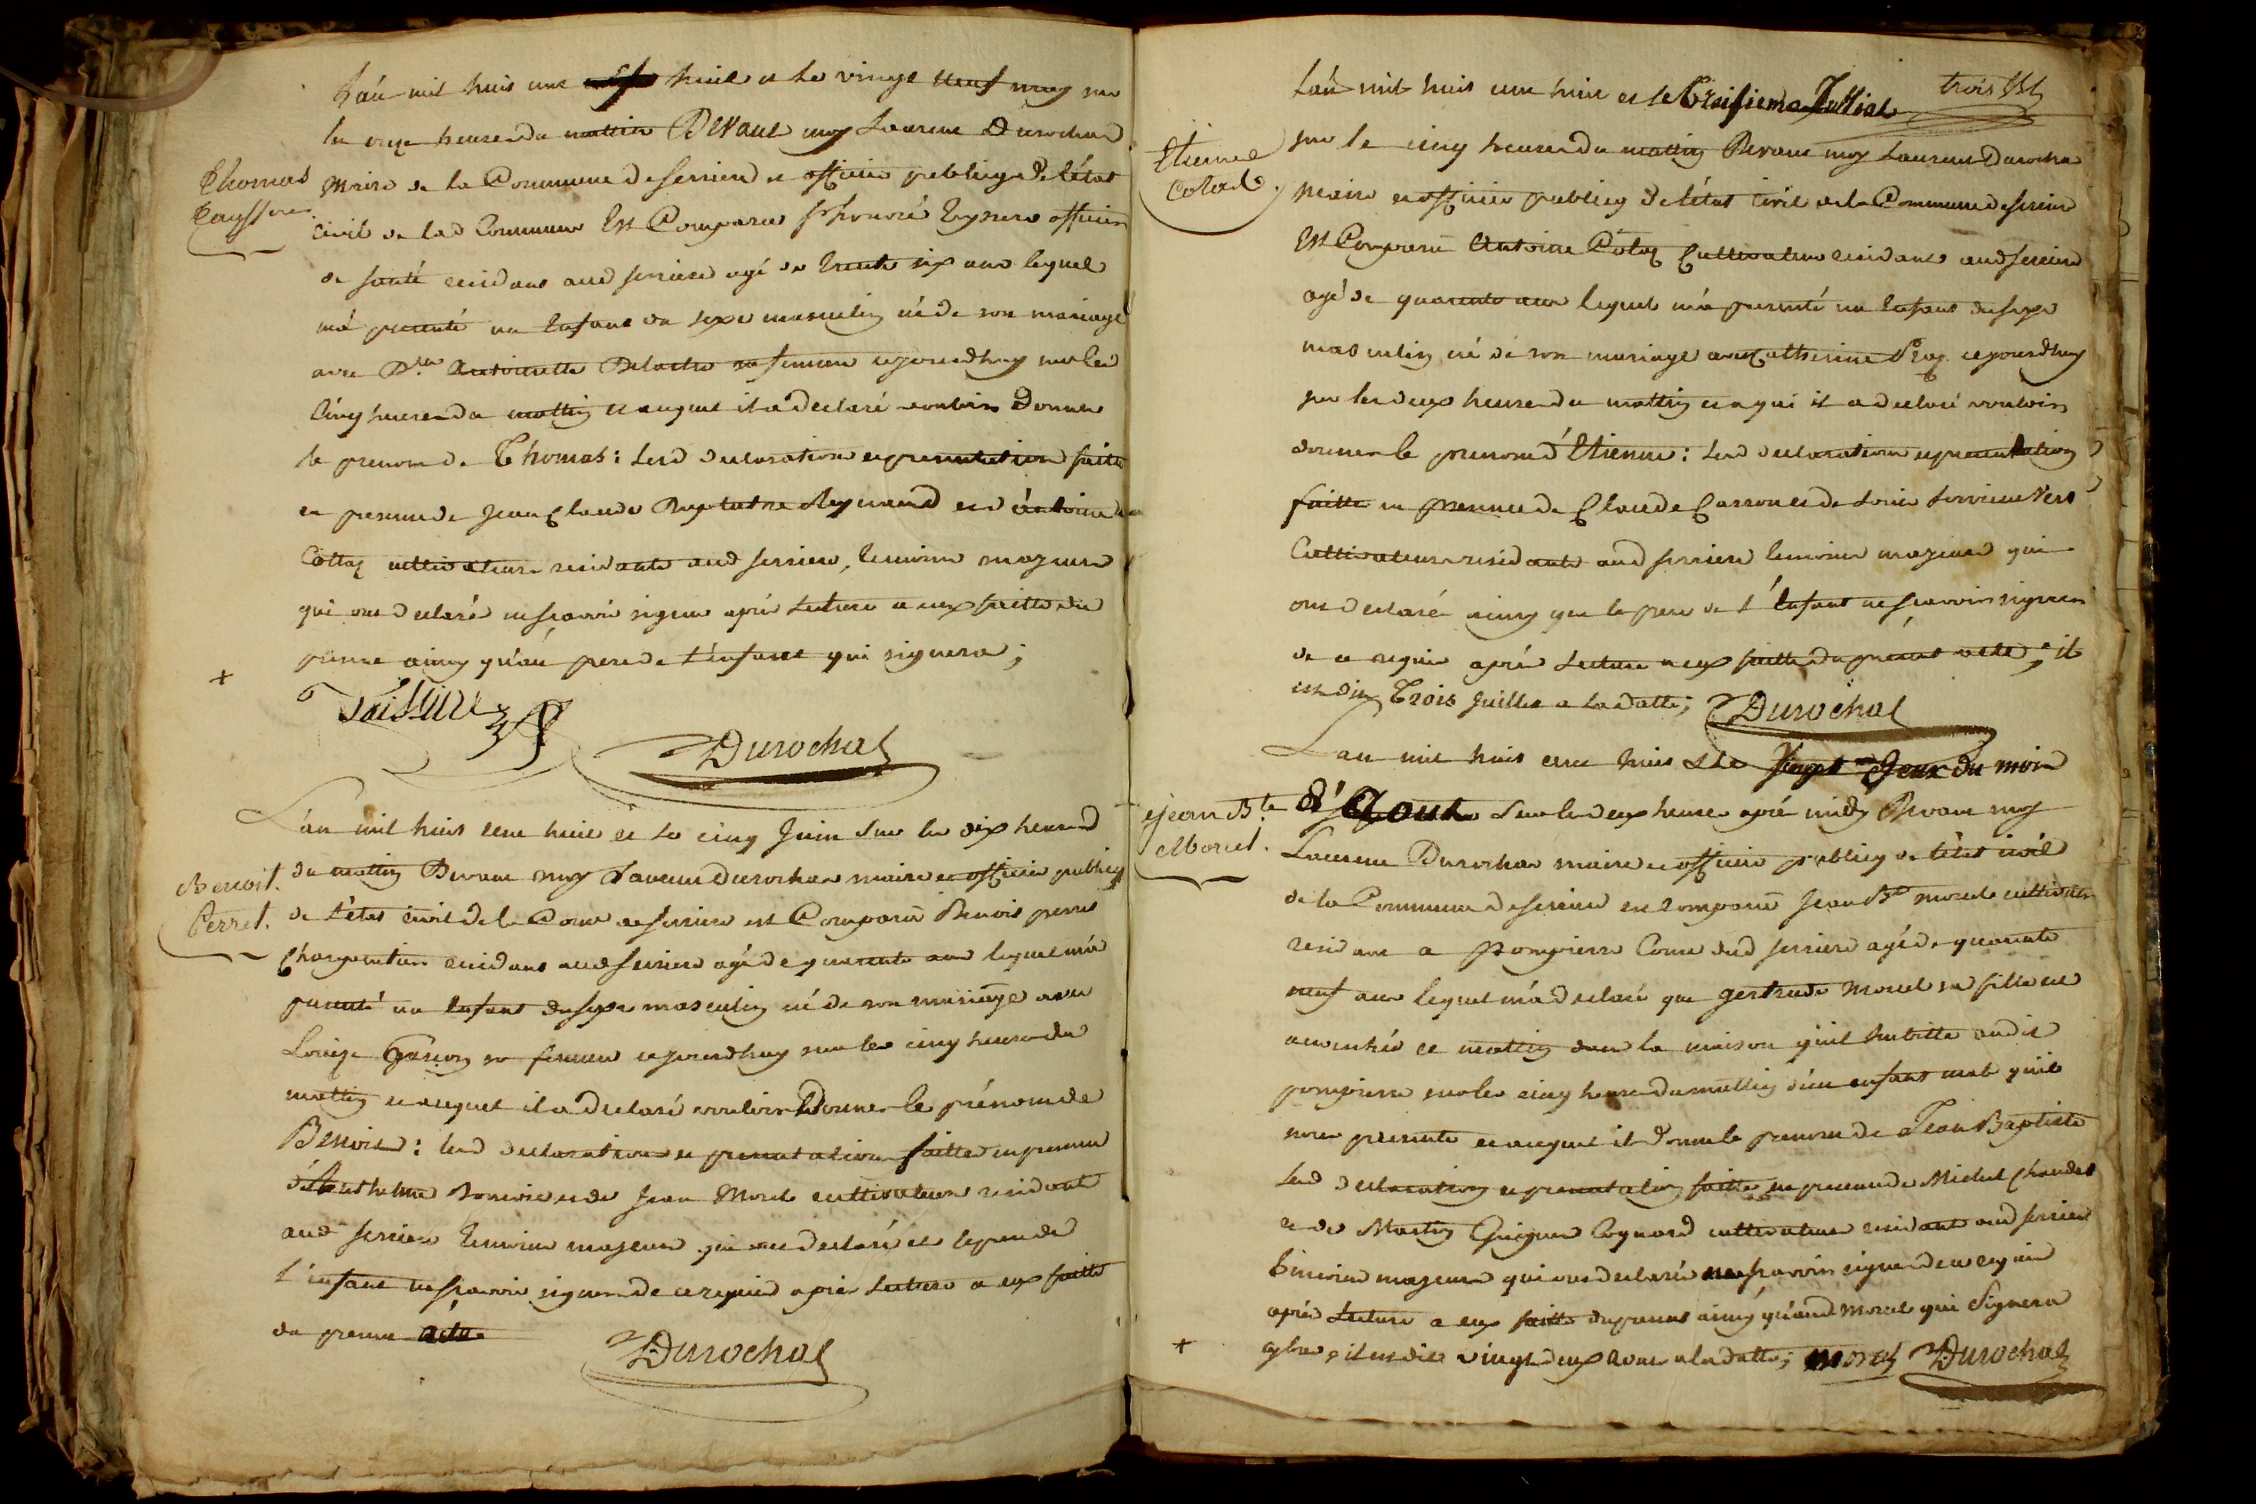 L'an mil huit cent huit et le vingt neuf may sur
les onze heures du mattin Devant moy Laurent Durochat
Thomas
Tayssere
Maire de la Commune de serriere et officier publicq de l'état
civil de lad Commune Est Comparu sr honoré officier
de santé residant aud serriere agé de trente six ans lequel
m'á presenté un Enfant du sexe masculin né de son mariage
avec Dlle Antoinette Delastre sa femme cejourdhuy sur les
Cinq heures du mattin et auquel il a declaré vouloir Donner
le prenom de Thomas : lesd declaration et presentation faite
en presence de Jean Claude Reynaud et d'antoine
Cottaz cultivateurs residants aud serriere, temoins majeurs
qui ont declaré ne scavoir signer aprés Lecture a eux faitte du
présent ainsy qu'au pere de l'enfant qui signera ;
Durochat
L'an mil huit cent huit et le cinq Juin sur les dix heures
Benoit.
Perret.
du mattin Devant moy Laurent Durochat maire et officier publicq
de l'état civil de la Come de serriere est Comparu Benoit perret
Charpentier residant aud serriere agé de quarente ans lequel m'á
presenté un Enfant du sexe masculin né de son mariage avec
Louize sa femme cejourdhuy sur les cinq heures du
mattin et auquel il a declaré vouloir Donner le prénom de
Benoit : lesd declaration et presentation faitte en presence
et de Jean Morel cultivateurs residants
aud serriere temoins majeurs qui ont declaré et le pere de
l'enfant ne scavoir signer de ce requis aprés Lecture a eux faitte
du present acte
Durochat
L'an mil huit cent huit et le Troisieme Julliet trois
Etienne
Colad.
sur le cinq heures du mattin Devant moy Laurent Durochat
Maire et officier publicq de l'état civil de la Commune de serriere
Est Comparu Antoine Colaz Cultivateur residant aud serriere
agé de quarente ans lequel m'á presenté un Enfant du sexe
masculin né de son mariage avec Catherine cejourdhuy
sur les deux heures du mattin et a qui il a declaré vouloir
donner le prenom d'Etienne : lesd declaration et presentation
faitte en presence de Claude Carron et de
Cultivateurs residants aud serriere temoins majeurs qui
ont declaré ainsy que le pere de l'Enfant ne scavoir signer
de ce requis aprés Lecture a eux faitte du présent acte ; il
est dit Trois Juillet a la datte ; Durochat
L'an mil huit cent huit & le Vingt Deux du mois
Jean Bte
Morel.
d'Aout sur les deux heures aprés midy Devant moy
Laurent Durochat maire et officier publicq de l'état civil
de la Commune de serriere est comparu Jean Bte morel cultivateur
residant a pompierre Come dud serriere agé de quarente
neuf ans lequel m'á declaré que gertrude Morel sa fille est
accouchée ce mattin dans la maison qu'il habitte audit
pompierre sur les cinq heures du mattin d'un enfant mal qu'il
nous presente et auquel il donne le prenom de Jean Baptiste
lesd declaration et presentation faitte en presence de Michel Chaudet
et de Martin cultivateurs residants aud serriere
temoins majeurs qui ont declaré ne scavoir signer de ce requis
aprés Lecture a eux faitte du present ainsy qu'aud Morel qui signera
il est dit vingt deux Aout a la datte ; morel Durochat